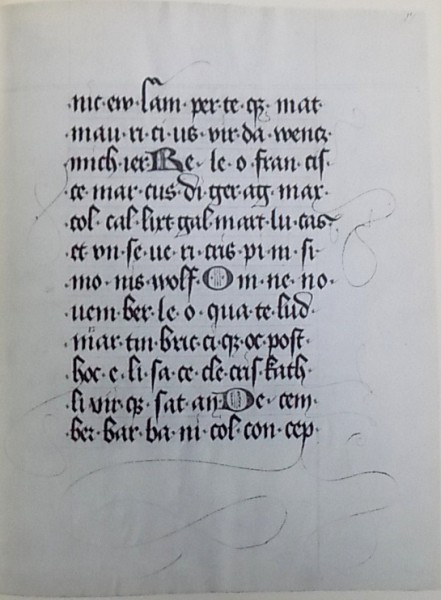 ·nic·ew·lam·per·te·qz·mat·
mau·ri·ci·us·vir·da·wencz·
mich·ier·Re·le·o·fran·cis·
·ce·mar·cus·di·ger·ag·max·
col·cal·lixt·gal·mart·lu·cas
·et·vn·se·ue·ri·cris·pi·ni·si·
mo·nis·wolf·Om·ne·no·
·uem·ber·le·o·qua·te·lud·
·mar·tin·bric·ci·qz·oc·post·
hoc·e·li·sa·ce·cle·cris·kath·
·li·vir·qz·sat·an·De·cem·
·ber·bar·ba·ni·col·con·cep·